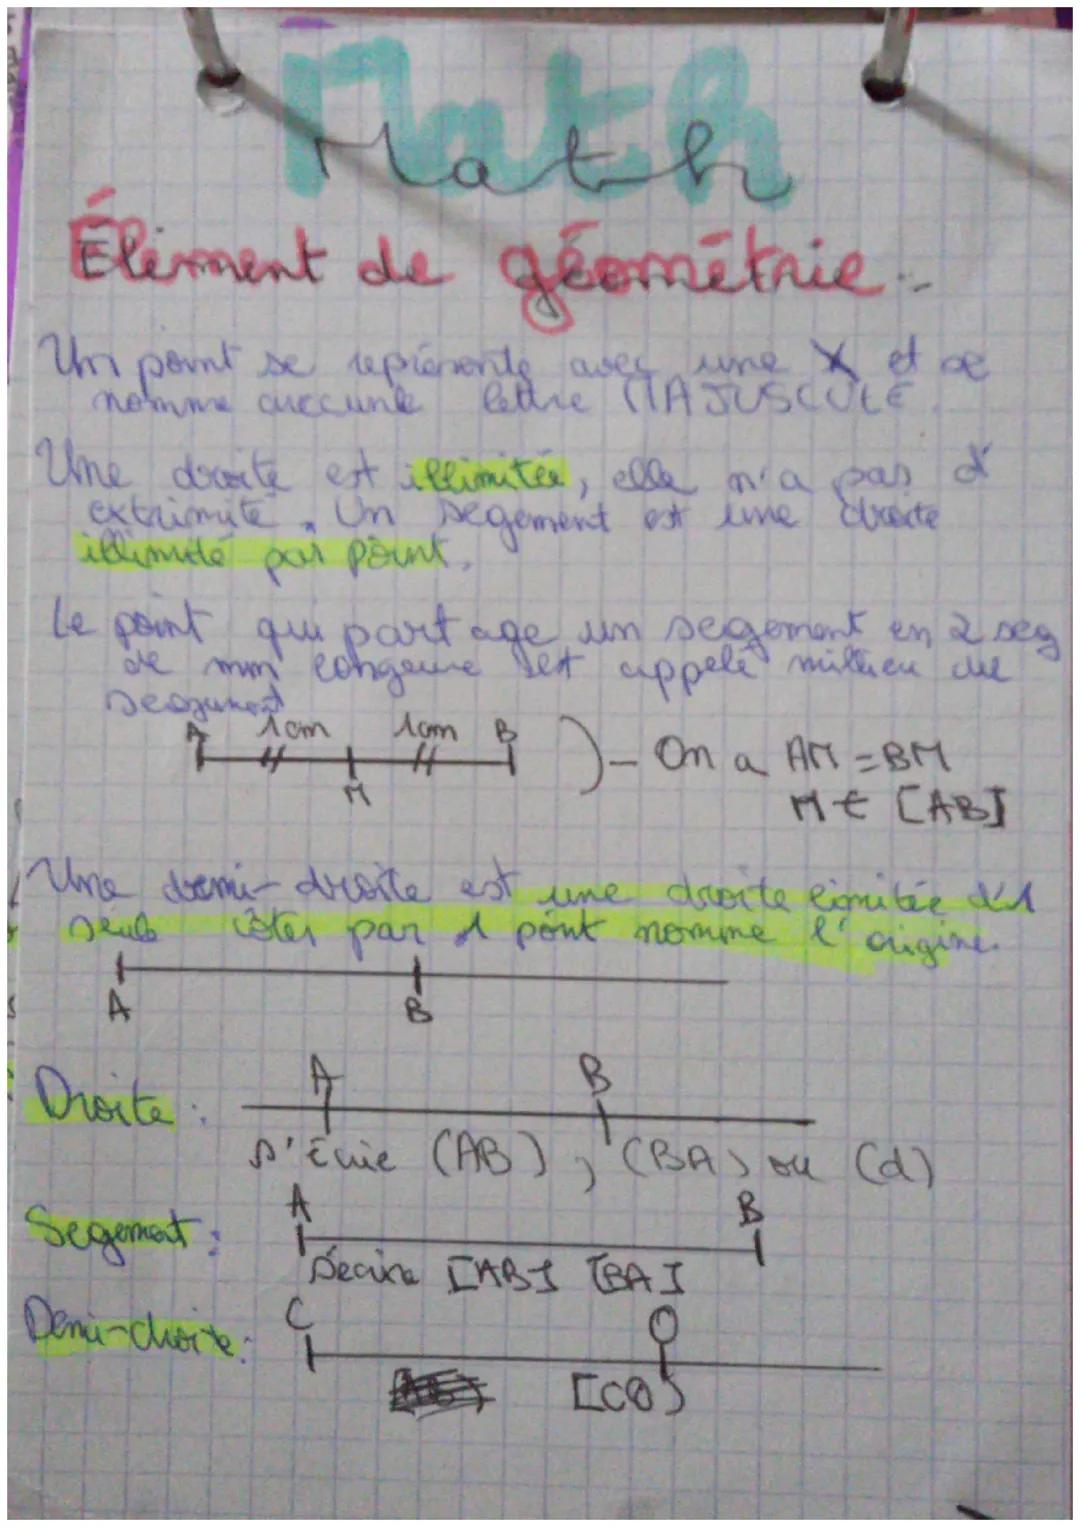 Math
Élément de géométrie.
Un point se représente avec une X et se
nomme lettre MAJUSCULE.
Une droite est illimitée, elle n'a pas d'
extrimité. Un segement est une droite
illimité par point.
Le point qui partage un segement en 2 seg
de mm longeure est appelé millieu du
A 1cm 1cm B
M
On a AM = BM
M ∈ [AB]
Une demi-droite est une droite limitée d'1
seule côter par 1 point nomme l'origine.
A B
Droite : A B
s'écrie (AB), (BA) ou (d)
Segement : A B
Sécrire [AB] [BA]
Demi-droite : C O
[CO)